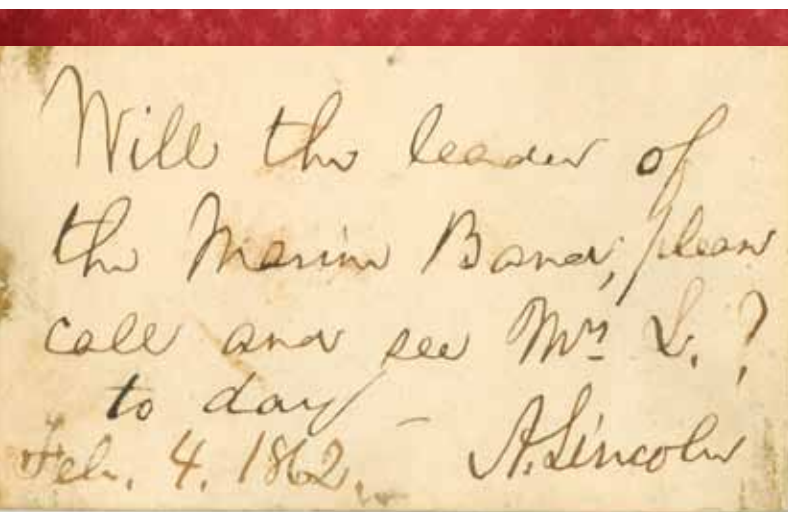 Will the leader of
the Marine Band, please
call and see Mrs L.?
to day –
Feb. 4. 1862. A. Lincoln